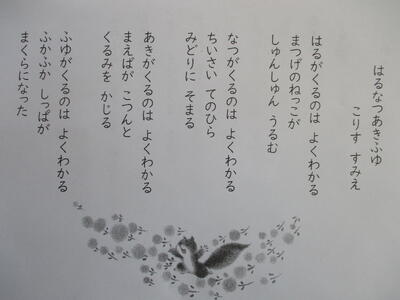 はるなつあきふゆ
こりす すみえ
はるがくるのは よくわかる
まつげのねっこが
しゅんしゅん うるむ
なつがくるのは よくわかる
ちいさい てのひら
みどりに そまる
あきがくるのは よくわかる
まえばが こつんと
くるみを かじる
ふゆがくるのは よくわかる
ふかふか しっぽが
まくらになった